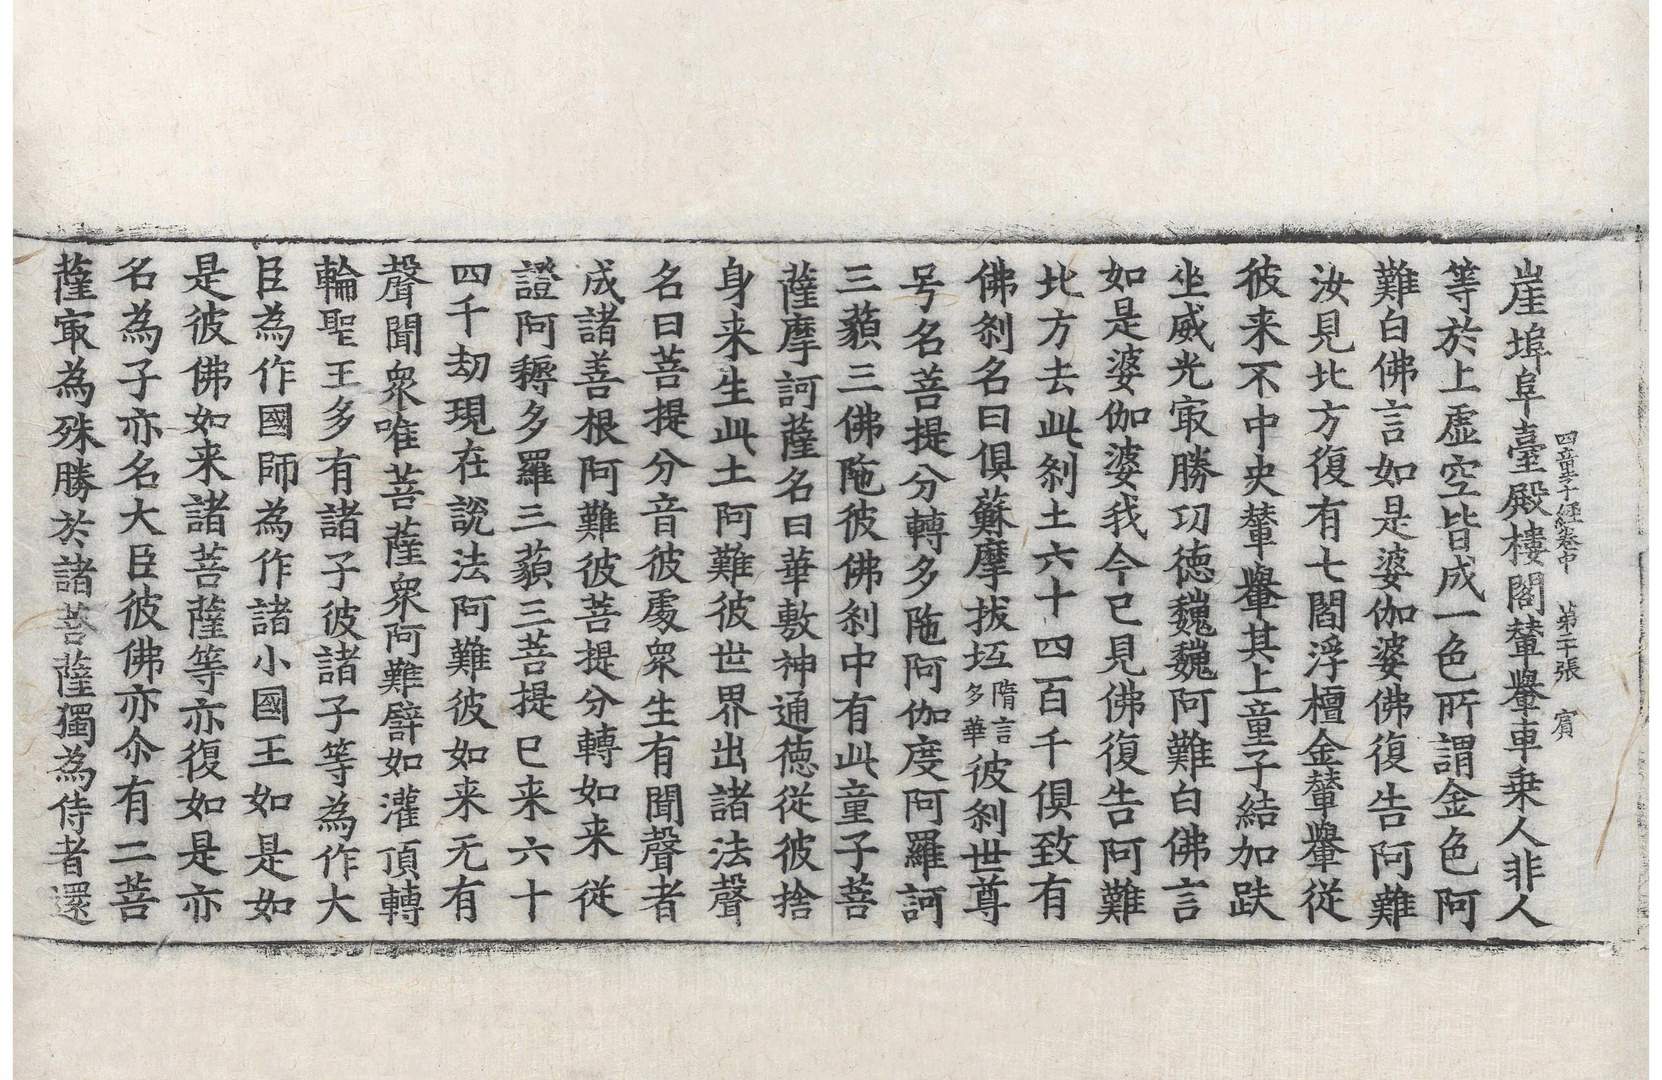 四童子經卷中　第二十張　賓
崖埠阜臺殿樓閣輦轝車乗人非人
等於上虛空皆成一色所謂金色阿
難白佛言如是婆伽婆佛復告阿難
汝見北方復有七閻浮檀金輦轝從
彼来不中央輦轝其上童子結加趺
坐威光㝡勝功徳巍巍阿難白佛言
如是婆伽婆我今已見佛復告阿難
北方去此刹土六十四百千俱致有
佛刹名曰俱蘇摩拔㧌隋言多華彼刹世尊
号名菩提分轉多陁阿伽度阿羅訶
三藐三佛陁彼佛刹中有此童子菩
薩摩訶薩名曰華敷神通徳從彼捨
身来生此土阿難彼世界出諸法聲
名曰菩提分音彼處衆生有聞聲者
成諸善根阿難彼菩提分轉如来從
證阿耨多羅三藐三菩提已来六十
四千劫現在說法阿難彼如来无有
聲聞衆唯菩薩衆阿難譬如灌頂轉
輪聖王多有諸子彼諸子等為作大
臣為作國師為作諸小國王如是如
是彼佛如来諸菩薩等亦復如是亦
名為子亦名大臣彼佛亦尒有二菩
薩㝡為殊勝於諸菩薩獨為侍者還